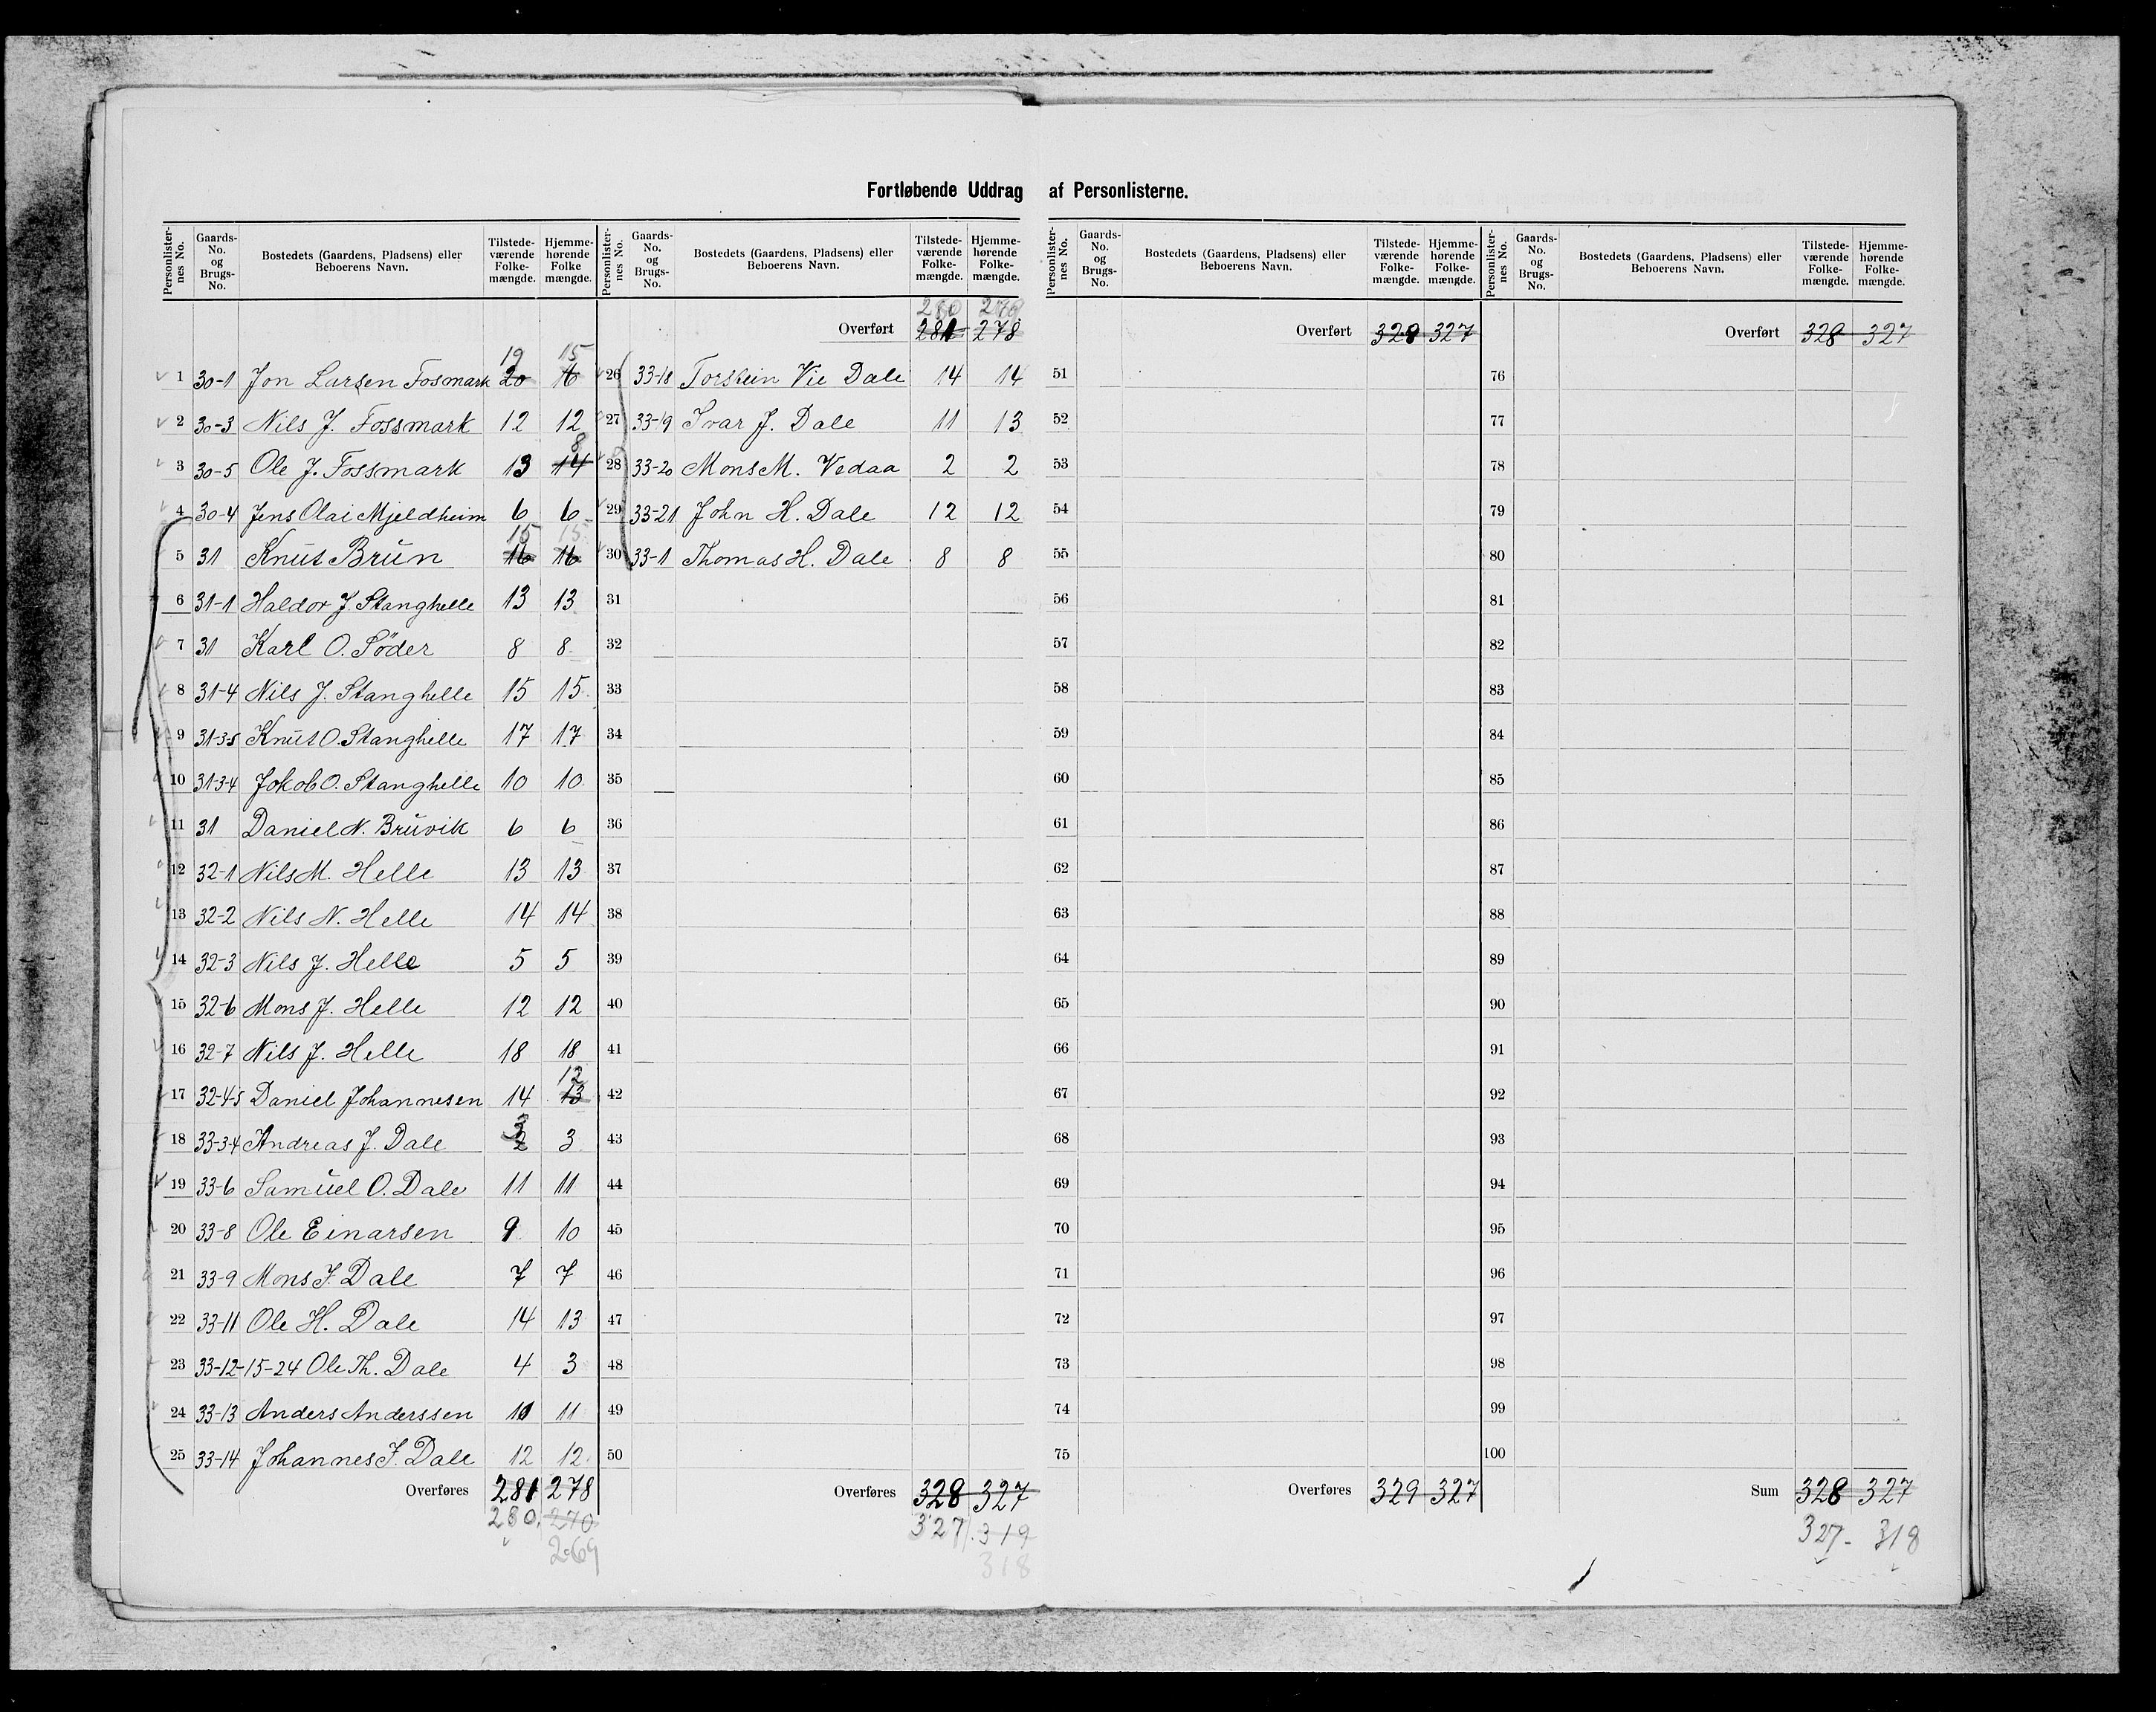 Fortløbende Uddrag af Personlisterne.
Personlisternes No. | Gaards-No. og Brugs-No. | Bostedets (Gaardens, Pladsens) eller Beboerens Navn. | Tilstedeværende Folkemængde. | Hjemmehørende Folkemængde.
1 30-1 Jon Larsen Fosmark 20 19 16 15
2 30-3 Nils J. Fossmark 12 12
3 30-5 Ole J. Fossmark 13 14 8
4 30-4 Jens Olai Mjeldheim 6 6
5 31 Knut Brun 16 15 16 15
6 31-1 Haldor J. Stanghelle 13 13
7 31 Karl O. Söder 8 8
8 31-4 Nils J. Stanghelle 15 15
9 31-3-5 Knut O. Stanghelle 17 17
10 31-3-4 Jokob O. Stanghelle 10 10
11 31 Daniel N. Bruvik 6 6
12 32-1 Nils M. Helle 13 13
13 32-2 Nils N. Helle 14 14
14 32-3 Nils J. Helle 5 5
15 32-6 Mons J. Helle 12 12
16 32-7 Nils J. Helle 18 18
17 32-4-5 Daniel Johannesen 14 13 12
18 33-3-4 Andreas J. Dale 2 3 3
19 33-6 Samuel O. Dale 11 11
20 33-8 Ole Einarsen 9 10
21 33-9 Mons J. Dale 7 7
22 33-11 Ole H. Dale 14 13
23 33-12-15-24 Ole Th. Dale 4 3
24 33-13 Anders Anderssen 11 11
25 33-14 Johannes J. Dale 12 12
Overføres 281 278
280. 270
269
Personlisternes No. | Gaards-No. og Brugs-No. | Bostedets (Gaardens, Pladsens) eller Beboerens Navn. | Tilstedeværende Folkemængde. | Hjemmehørende Folkemængde.
280 270
Overført 281 278
26 33-18 Torstein Vie Dale 14 14
27 33-19 Ivar J. Dale 11 13
28 33-20 Mons M. Vedaa 2 2
29 33-21 John H. Dale 12 12
30 33-1 Thomas H. Dale 8 8
31
32
33
34
35
36
37
38
39
40
41
42
43
44
45
46
47
48
49
50
Overføres 328 327
327. 319
318
Personlisternes No. | Gaards-No. og Brugs-No. | Bostedets (Gaardens, Pladsens) eller Beboerens Navn. | Tilstedeværende Folkemængde. | Hjemmehørende Folkemængde.
Overført 329 327
51
52
53
54
55
56
57
58
59
60
61
62
63
64
65
66
67
68
69
70
71
72
73
74
75
Overføres 329 327
Personlisternes No. | Gaards-No. og Brugs-No. | Bostedets (Gaardens, Pladsens) eller Beboerens Navn. | Tilstedeværende Folkemængde. | Hjemmehørende Folkemængde.
Overført 328 327
76
77
78
79
80
81
82
83
84
85
86
87
88
89
90
91
92
93
94
95
96
97
98
99
100
Sum 328 327
327 - 318